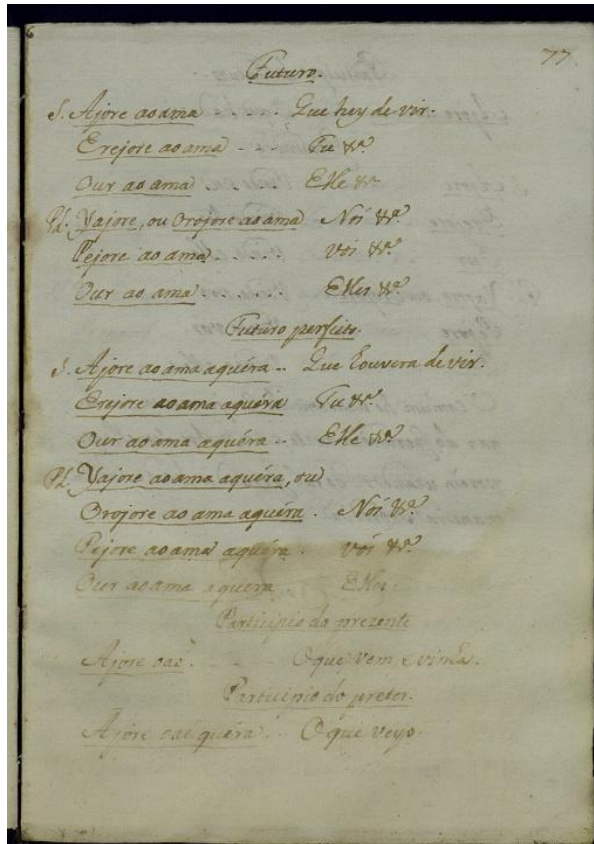 77
Futuro.
S. Ajore aoama .. .. Que hey de vir.
Erejore aoama . .. Tu &ª
Our aoama .. Elle &ª
Pl. Yajore, ou Orojore aoama Nós &ª.
Pejore aoama ..... vós &ª.
Our aoama ..... Elles &ª.
Futuro perfeito.
S. Ajore aoama aquéra .. Que houvera de vir.
Erejore aoama aquéra Tu &ª
Our aoama aquéra .. Elle &ª.
Pl. Yajore aoama aquéra, ou
Orojore aoama aquéra . Nós &ª.
Pejore aoama aquéra . vós &ª.
Our aoama aquera Elles.
Participio do prezente
Ajore vaè. . .. O que vem, e vinha.
Participio do preter.
Ajore vaé quéra .. O que veyo.